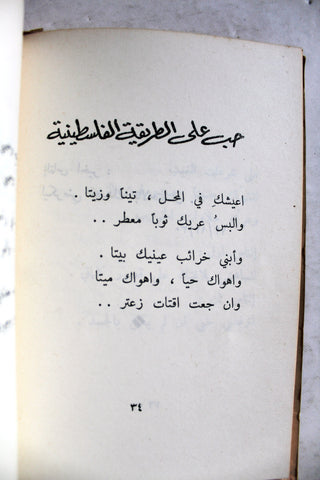 حب على الطريقة الفلسطينية
اعيشك في المحل ، تيناً وزيتا .
والبسُ عريك ثوباً معطر . .
وأبني خرائب عينيك بيتا .
واهواك حياً ، واهواك ميتا
وان جعت اقتات زعتر . .
٣٤